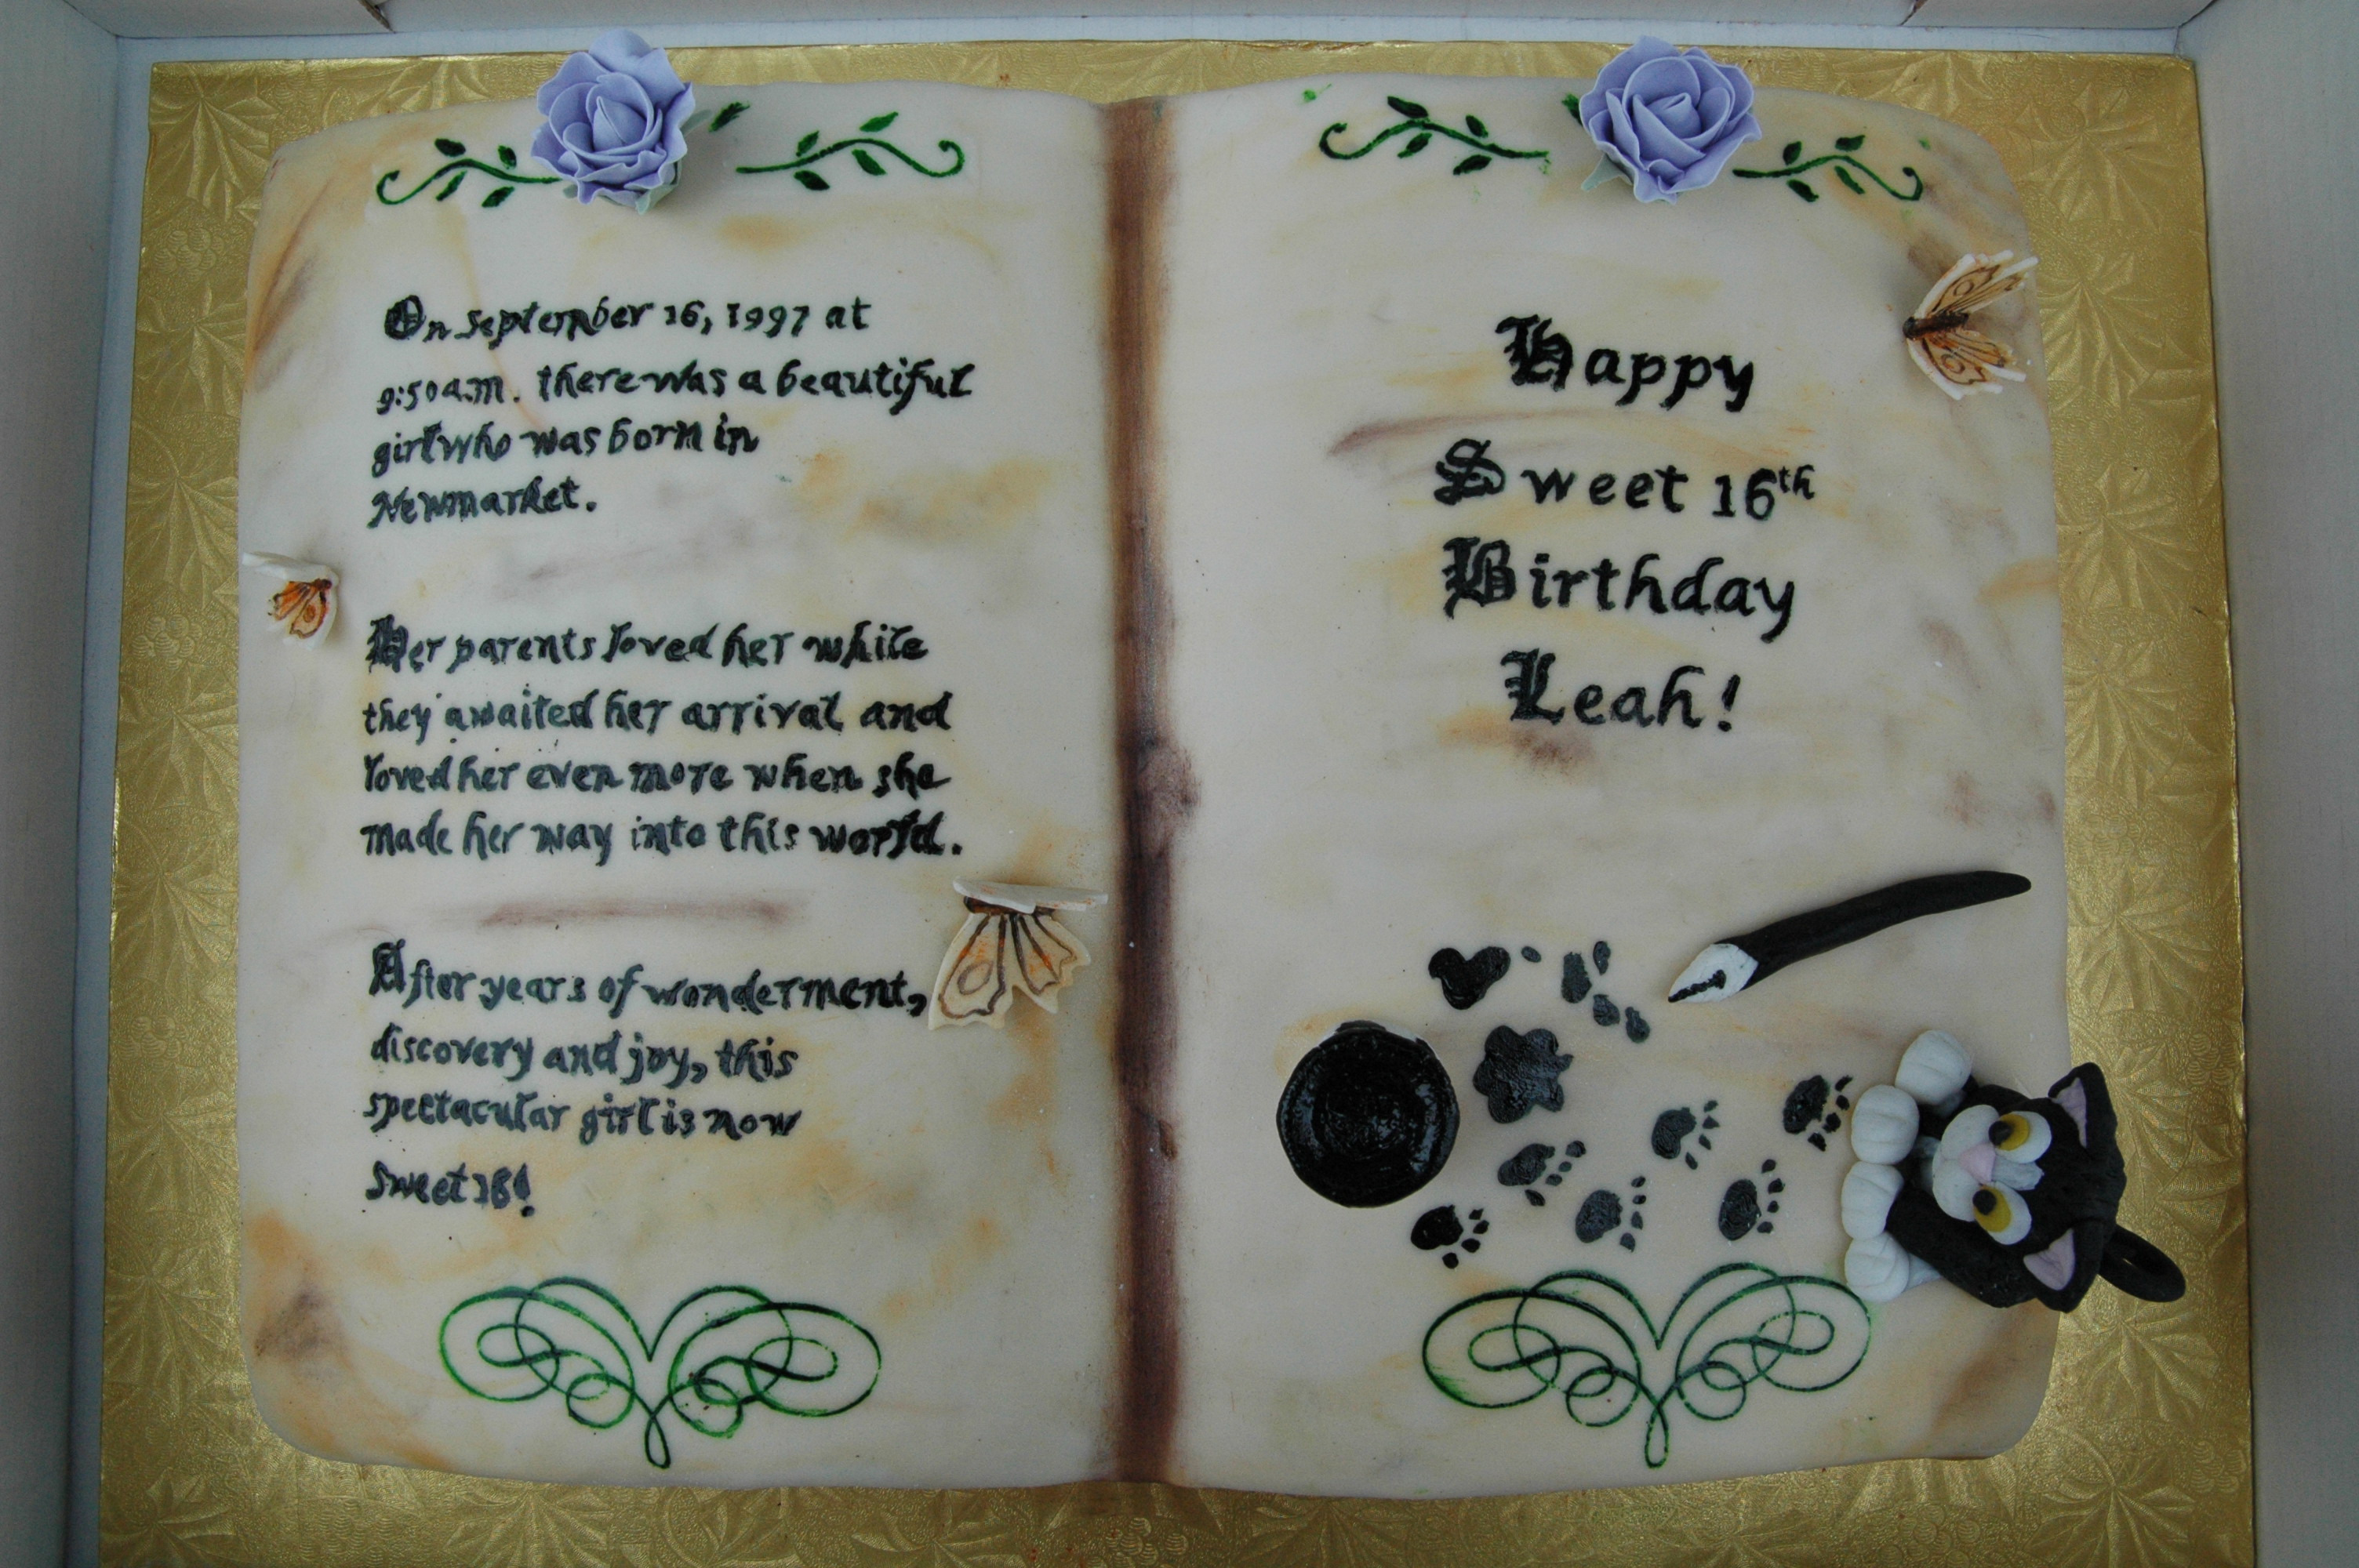 On September 16, 1997 at
9:50 a.m. there was a beautiful
girl who was born in
Newmarket.
Her parents loved her while
they awaited her arrival and
loved her even more when she
made her way into this world.
After years of wonderment,
discovery and joy, this
spectacular girl is now
Sweet 16!
Happy
Sweet 16th
Birthday
Leah!